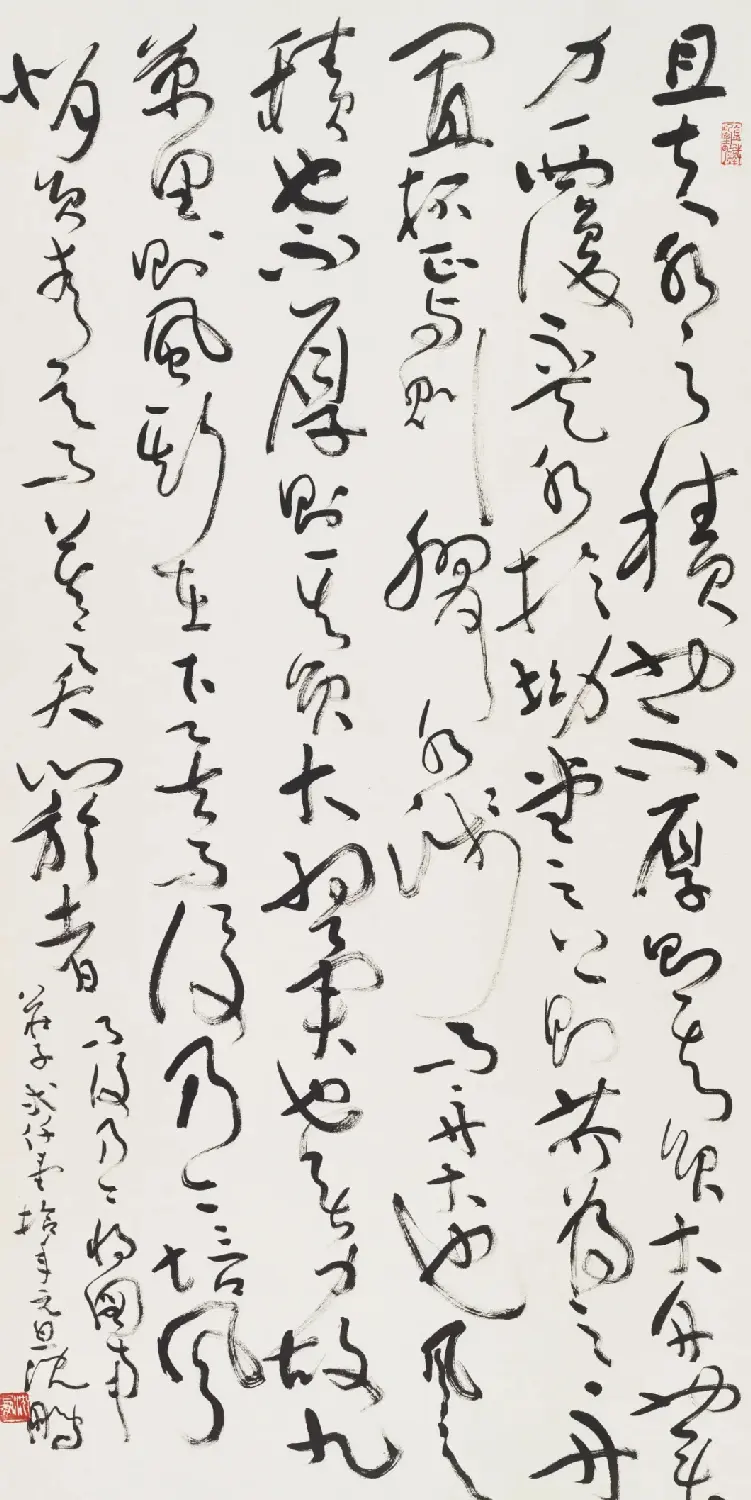 且夫水之積也不厚則其負大舟也無
力覆盃水於坳堂之上則芥為之舟
置杯焉則膠水淺而舟大也風之
積也不厚則其負大翼也無力故九
萬里則風斯在下矣而後乃今培風
背負青天而莫之夭閼者
而後乃今將圖南
莊子弍仟壹拾年元旦沈鵬